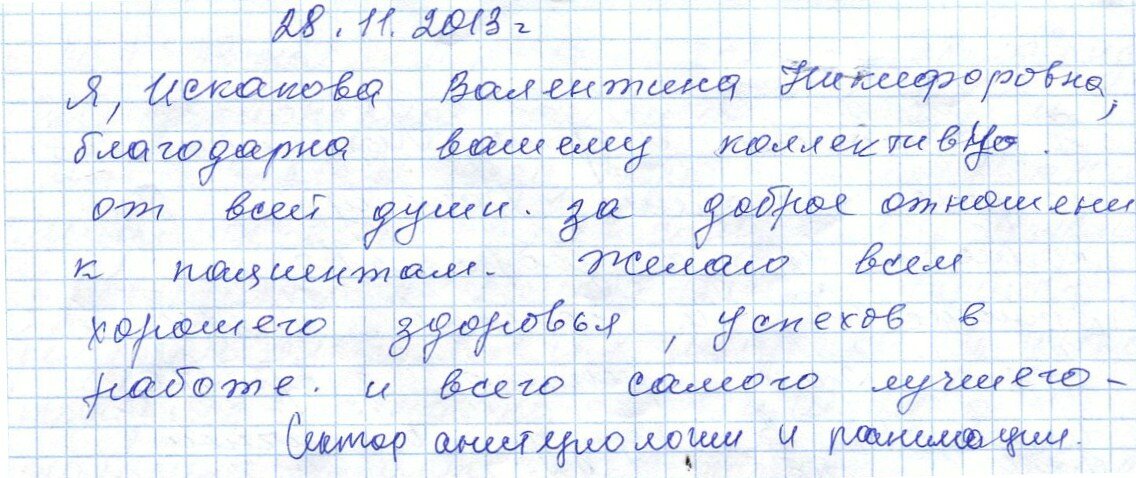 28.11.2013 г
Я, Искакова Валентина Никифоровна,
благодарна вашему коллективу.
от всей души. за доброе отношени
к пациентам. Желаю всем
хорошего здоровья, успехов в
работе. и всего самого лучшего-
Сектор и